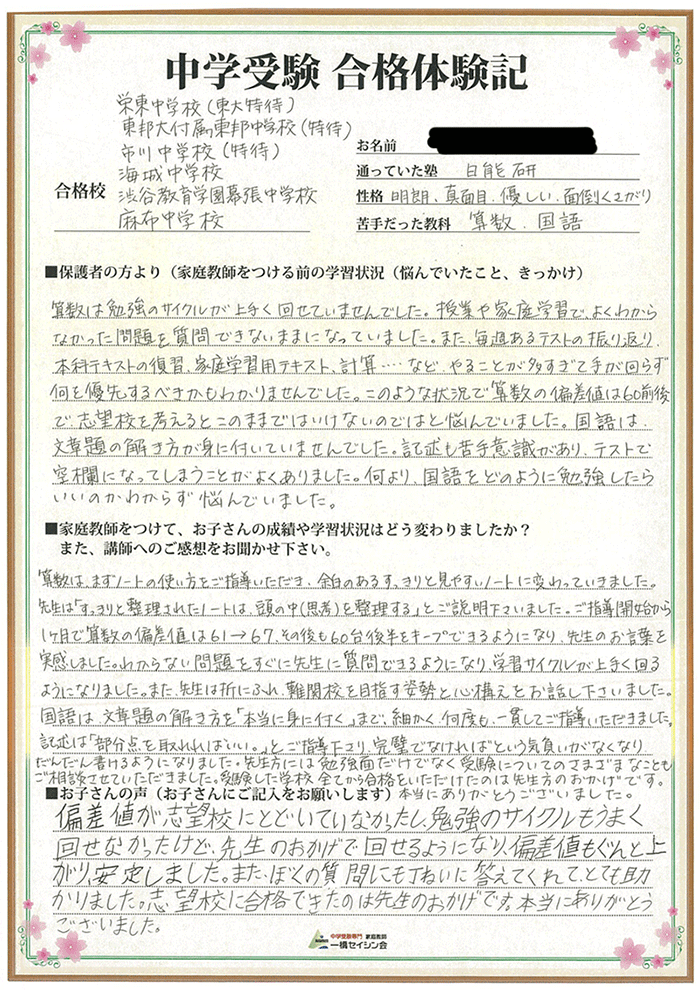 中学受験 合格体験記
合格校
栄東中学校(東大特待)
東邦大付属東邦中学校(特待)
市川中学校(特待)
海城中学校
渋谷教育学園幕張中学校
麻布中学校
お名前
通っていた塾 日能研
性格 明朗、真面目、優しい、面倒くさがり
苦手だった教科 算数、国語
■保護者の方より(家庭教師をつける前の学習状況(悩んでいたこと、きっかけ)
算数は勉強のサイクルが上手く回せていませんでした。授業や家庭学習で、よくわから
なかった問題を質問できないままになっていました。また、毎週あるテストの振り返り、
本科テキストの復習、家庭学習用テキスト、計算‥‥など、やることが多すぎて手が回らず
何を優先するべきかもわかりませんでした。このような状況で算数の偏差値は60前後
で、志望校を考えるとこのままではいけないのではと悩んでいました。国語は、
文章題の解き方が身に付いていませんでした。記述も苦手意識があり、テストで
空欄になってしまうことがよくありました。何より、国語をどのように勉強したら
いいのかわからず悩んでいました。
■家庭教師をつけて、お子さんの成績や学習状況はどう変わりましたか?
また、講師へのご感想をお聞かせ下さい。
算数は、まずノートの使い方をご指導いただき、余白のあるすっきりと見やすいノートに変わっていきました。
先生は「すっきりと整理されたノートは、頭の中(思考)を整理する」とご説明下さいました。ご指導開始から
1ヶ月で算数の偏差値は61→67、その後も60台後半をキープできるようになり、先生のお言葉を
実感しました。わからない問題をすぐに先生に質問できるようになり、学習サイクルが上手く回る
ようになりました。また、先生は折にふれ、難関校を目指す姿勢と心構えをお話し下さいました。
国語は、文章題の解き方を「本当に身に付く」まで、細かく、何度も、一貫してご指導いただきました。
記述は「部分点を取れればいい。」とご指導下さり、完璧でなければという気負いがなくなり
だんだん書けるようになりました。先生方には勉強面だけでなく受験についてのさまざまなことも
ご相談させていただきました。受験した学校全てから合格をいただけたのは先生方のおかげです。
本当にありがとうございました。
■お子さんの声(お子さんにご記入をお願いします)
偏差値が志望校にとどいていなかったし、勉強のサイクルもうまく
回せなかったけど、先生のおかげで回せるようになり、偏差値もぐんと上
がり、安定しました。また、ぼくの質問にもていねいに答えてくれて、とても助
かりました。志望校に合格できたのは先生のおかげです。本当にありがとう
ございました。
中学受験専門 家庭教師
一橋セイシン会